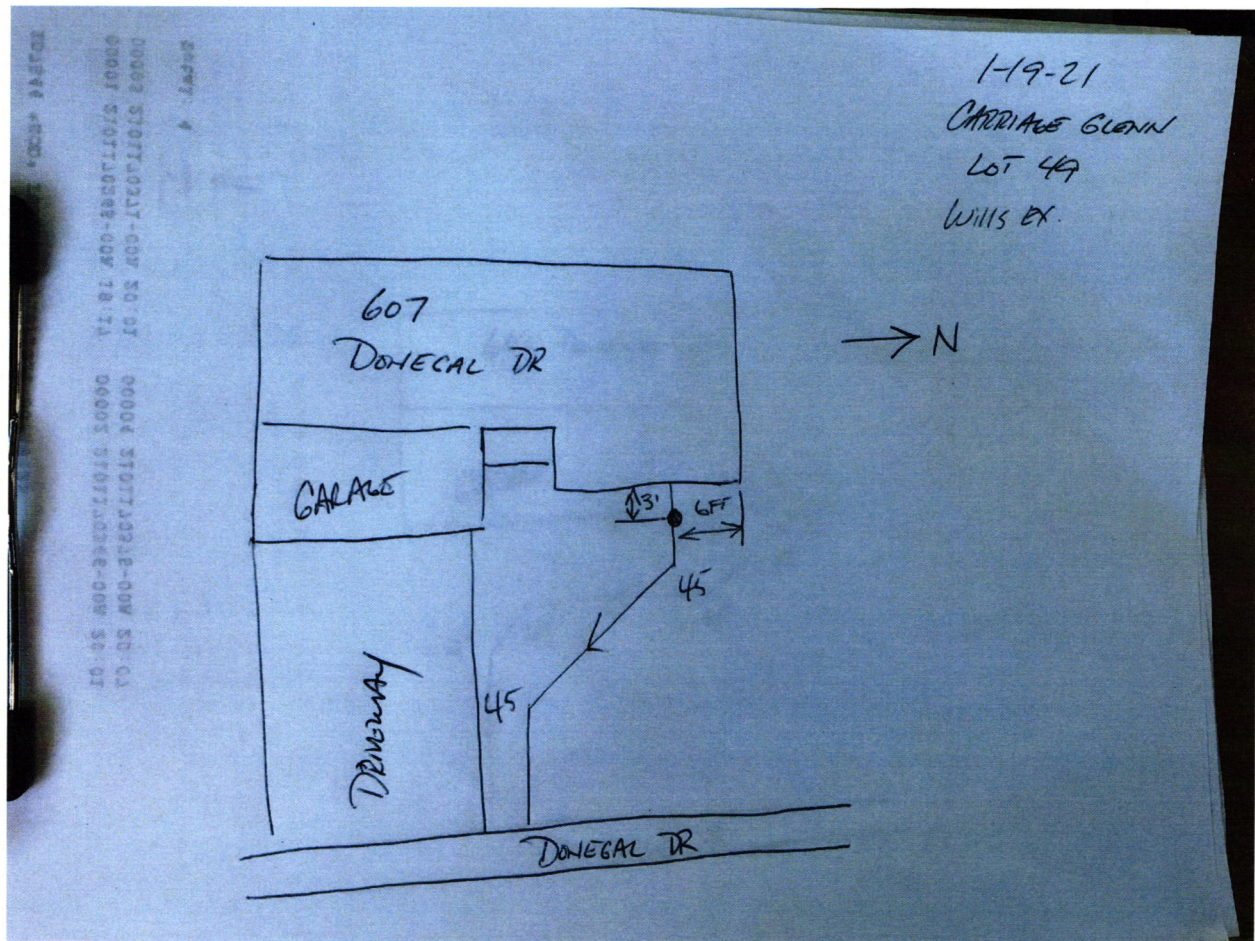 1-19-21
CARRIAGE GLENN
LOT 49
Wills EX.
607
DONEGAL DR
→ N
GARAGE
3'
6FT
45
45
DRIVEWAY
DONEGAL DR